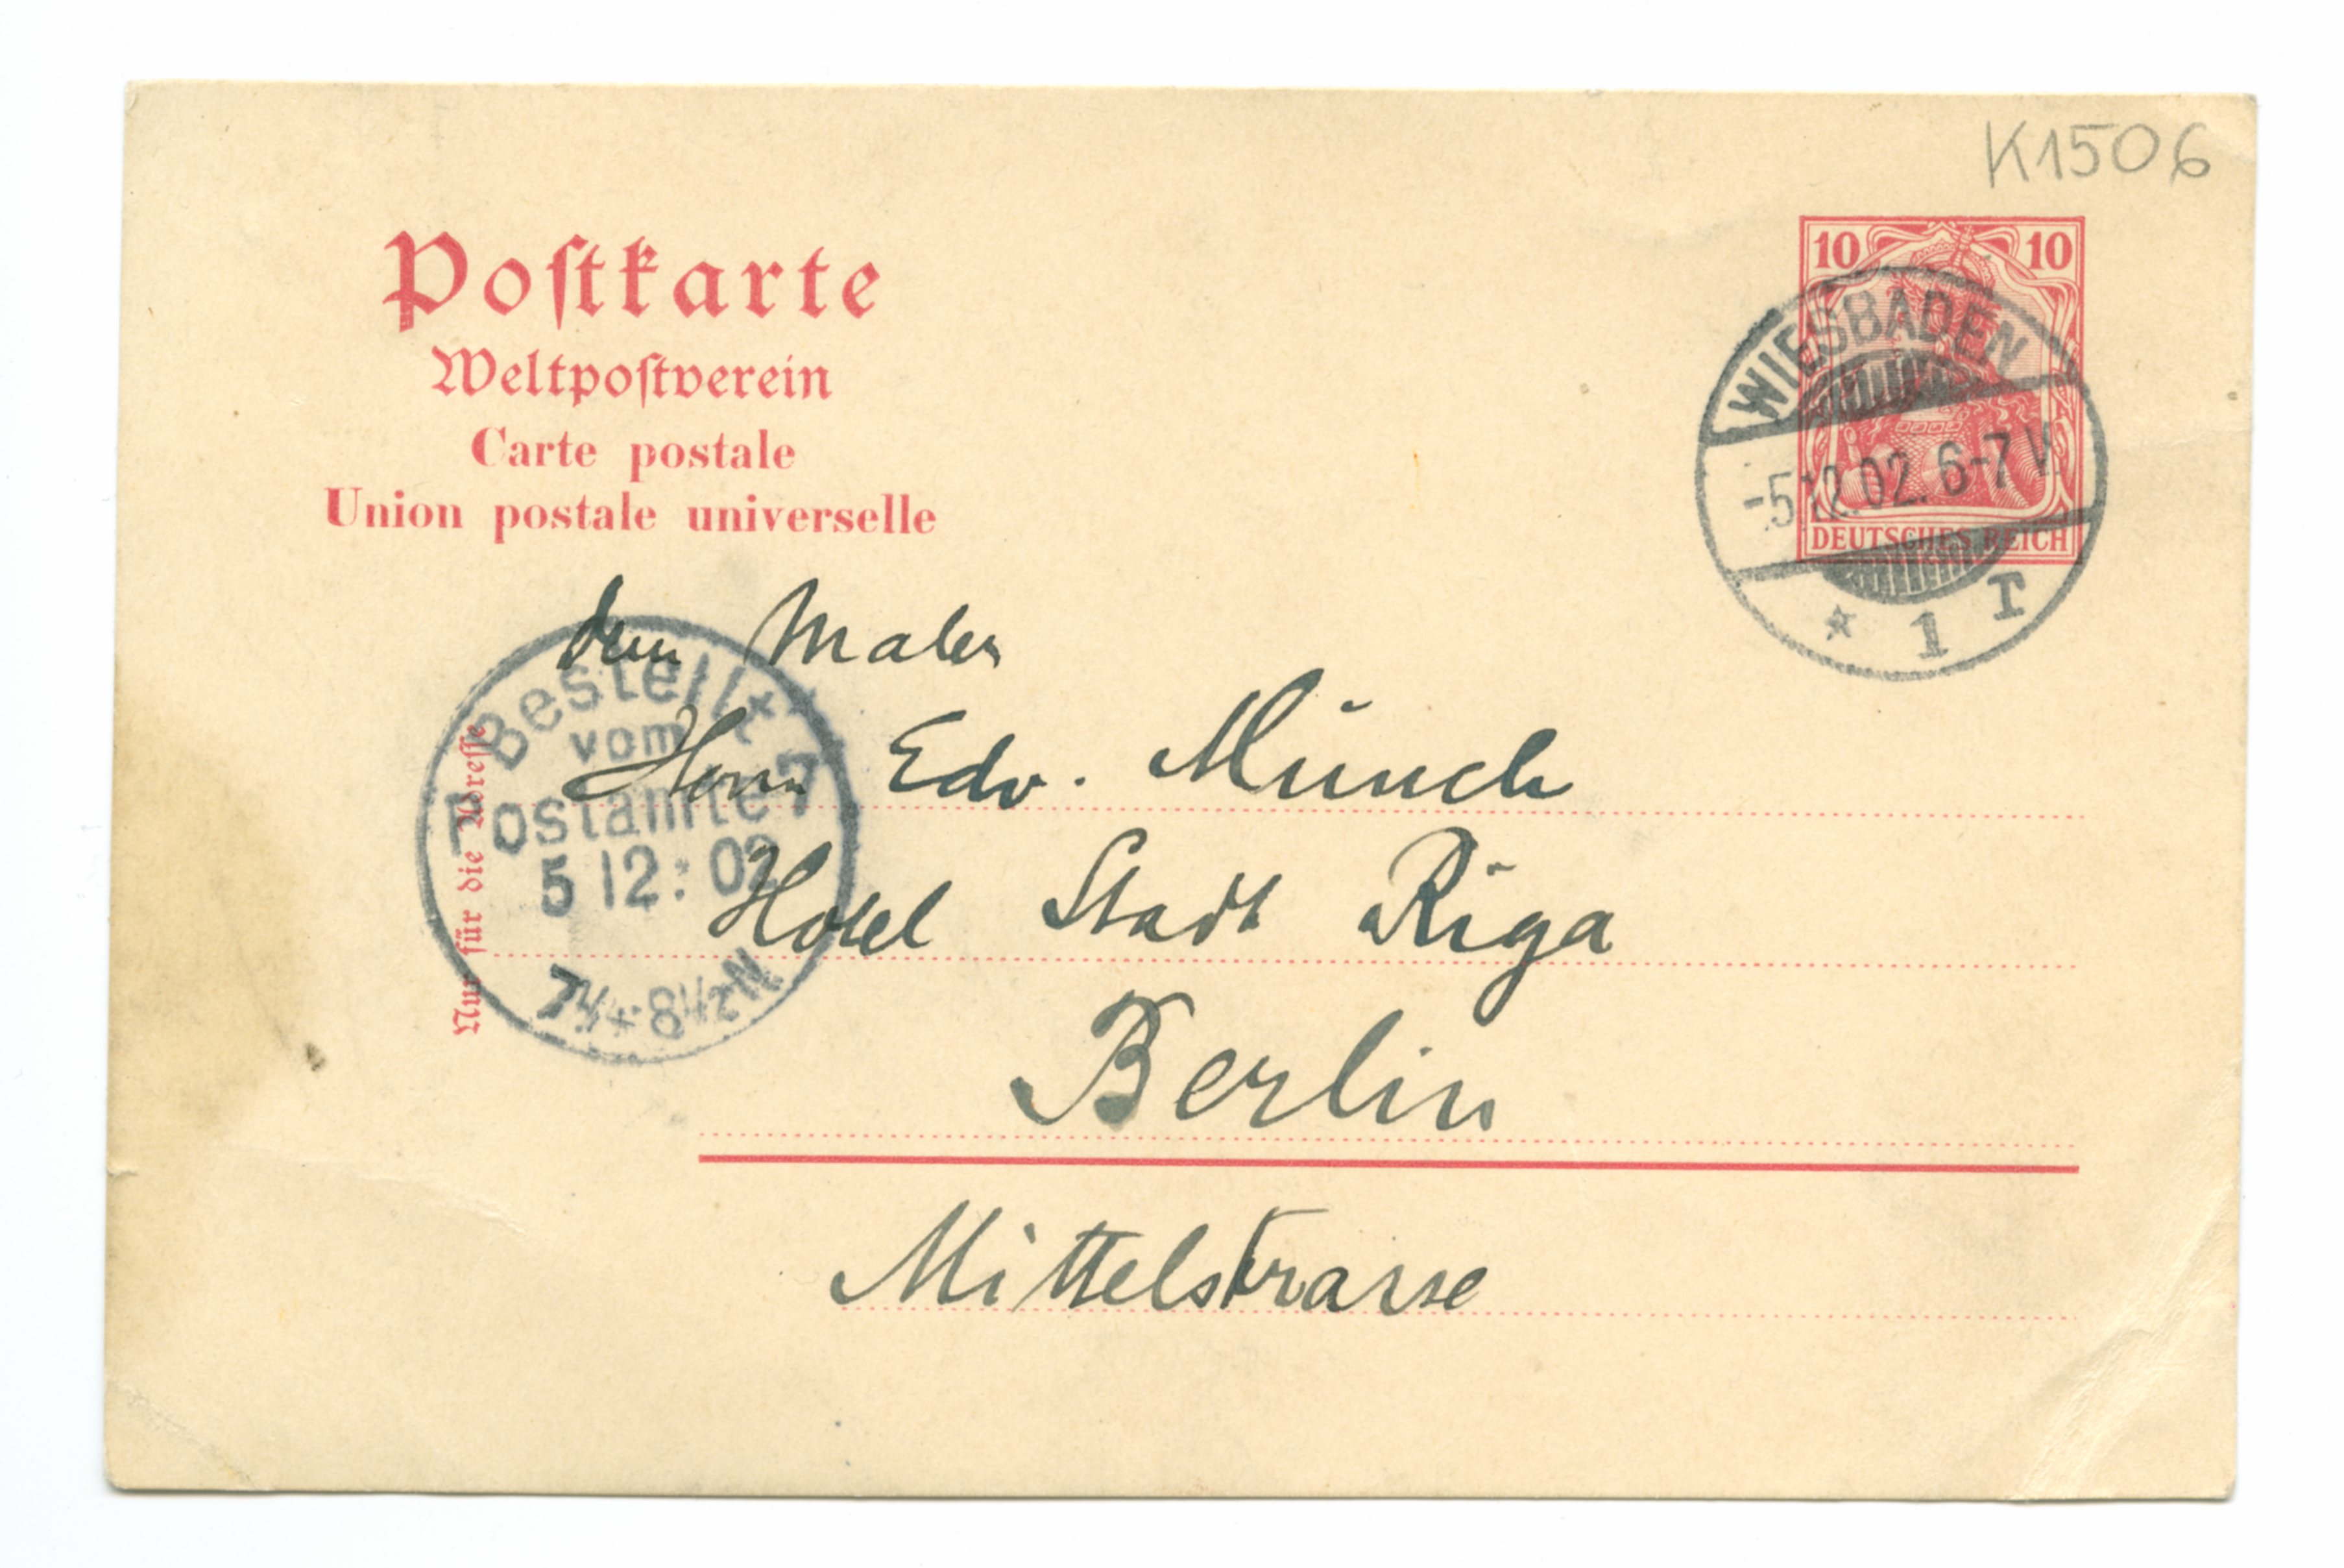 K1506
Postkarte
Weltpostverein
Carte postale
Union postale universelle
10 10
DEUTSCHES REICH
WIESBADEN
-5.12.02. 6-7 V.
* 1 r
dem Maler
Herrn Edv. Münch
Hotel Stadt Riga
Berlin
Mittelstrasse
Bestellt
vom
Postamte 7
5 12: 02
7¼-8½N
Nur für die Adresse